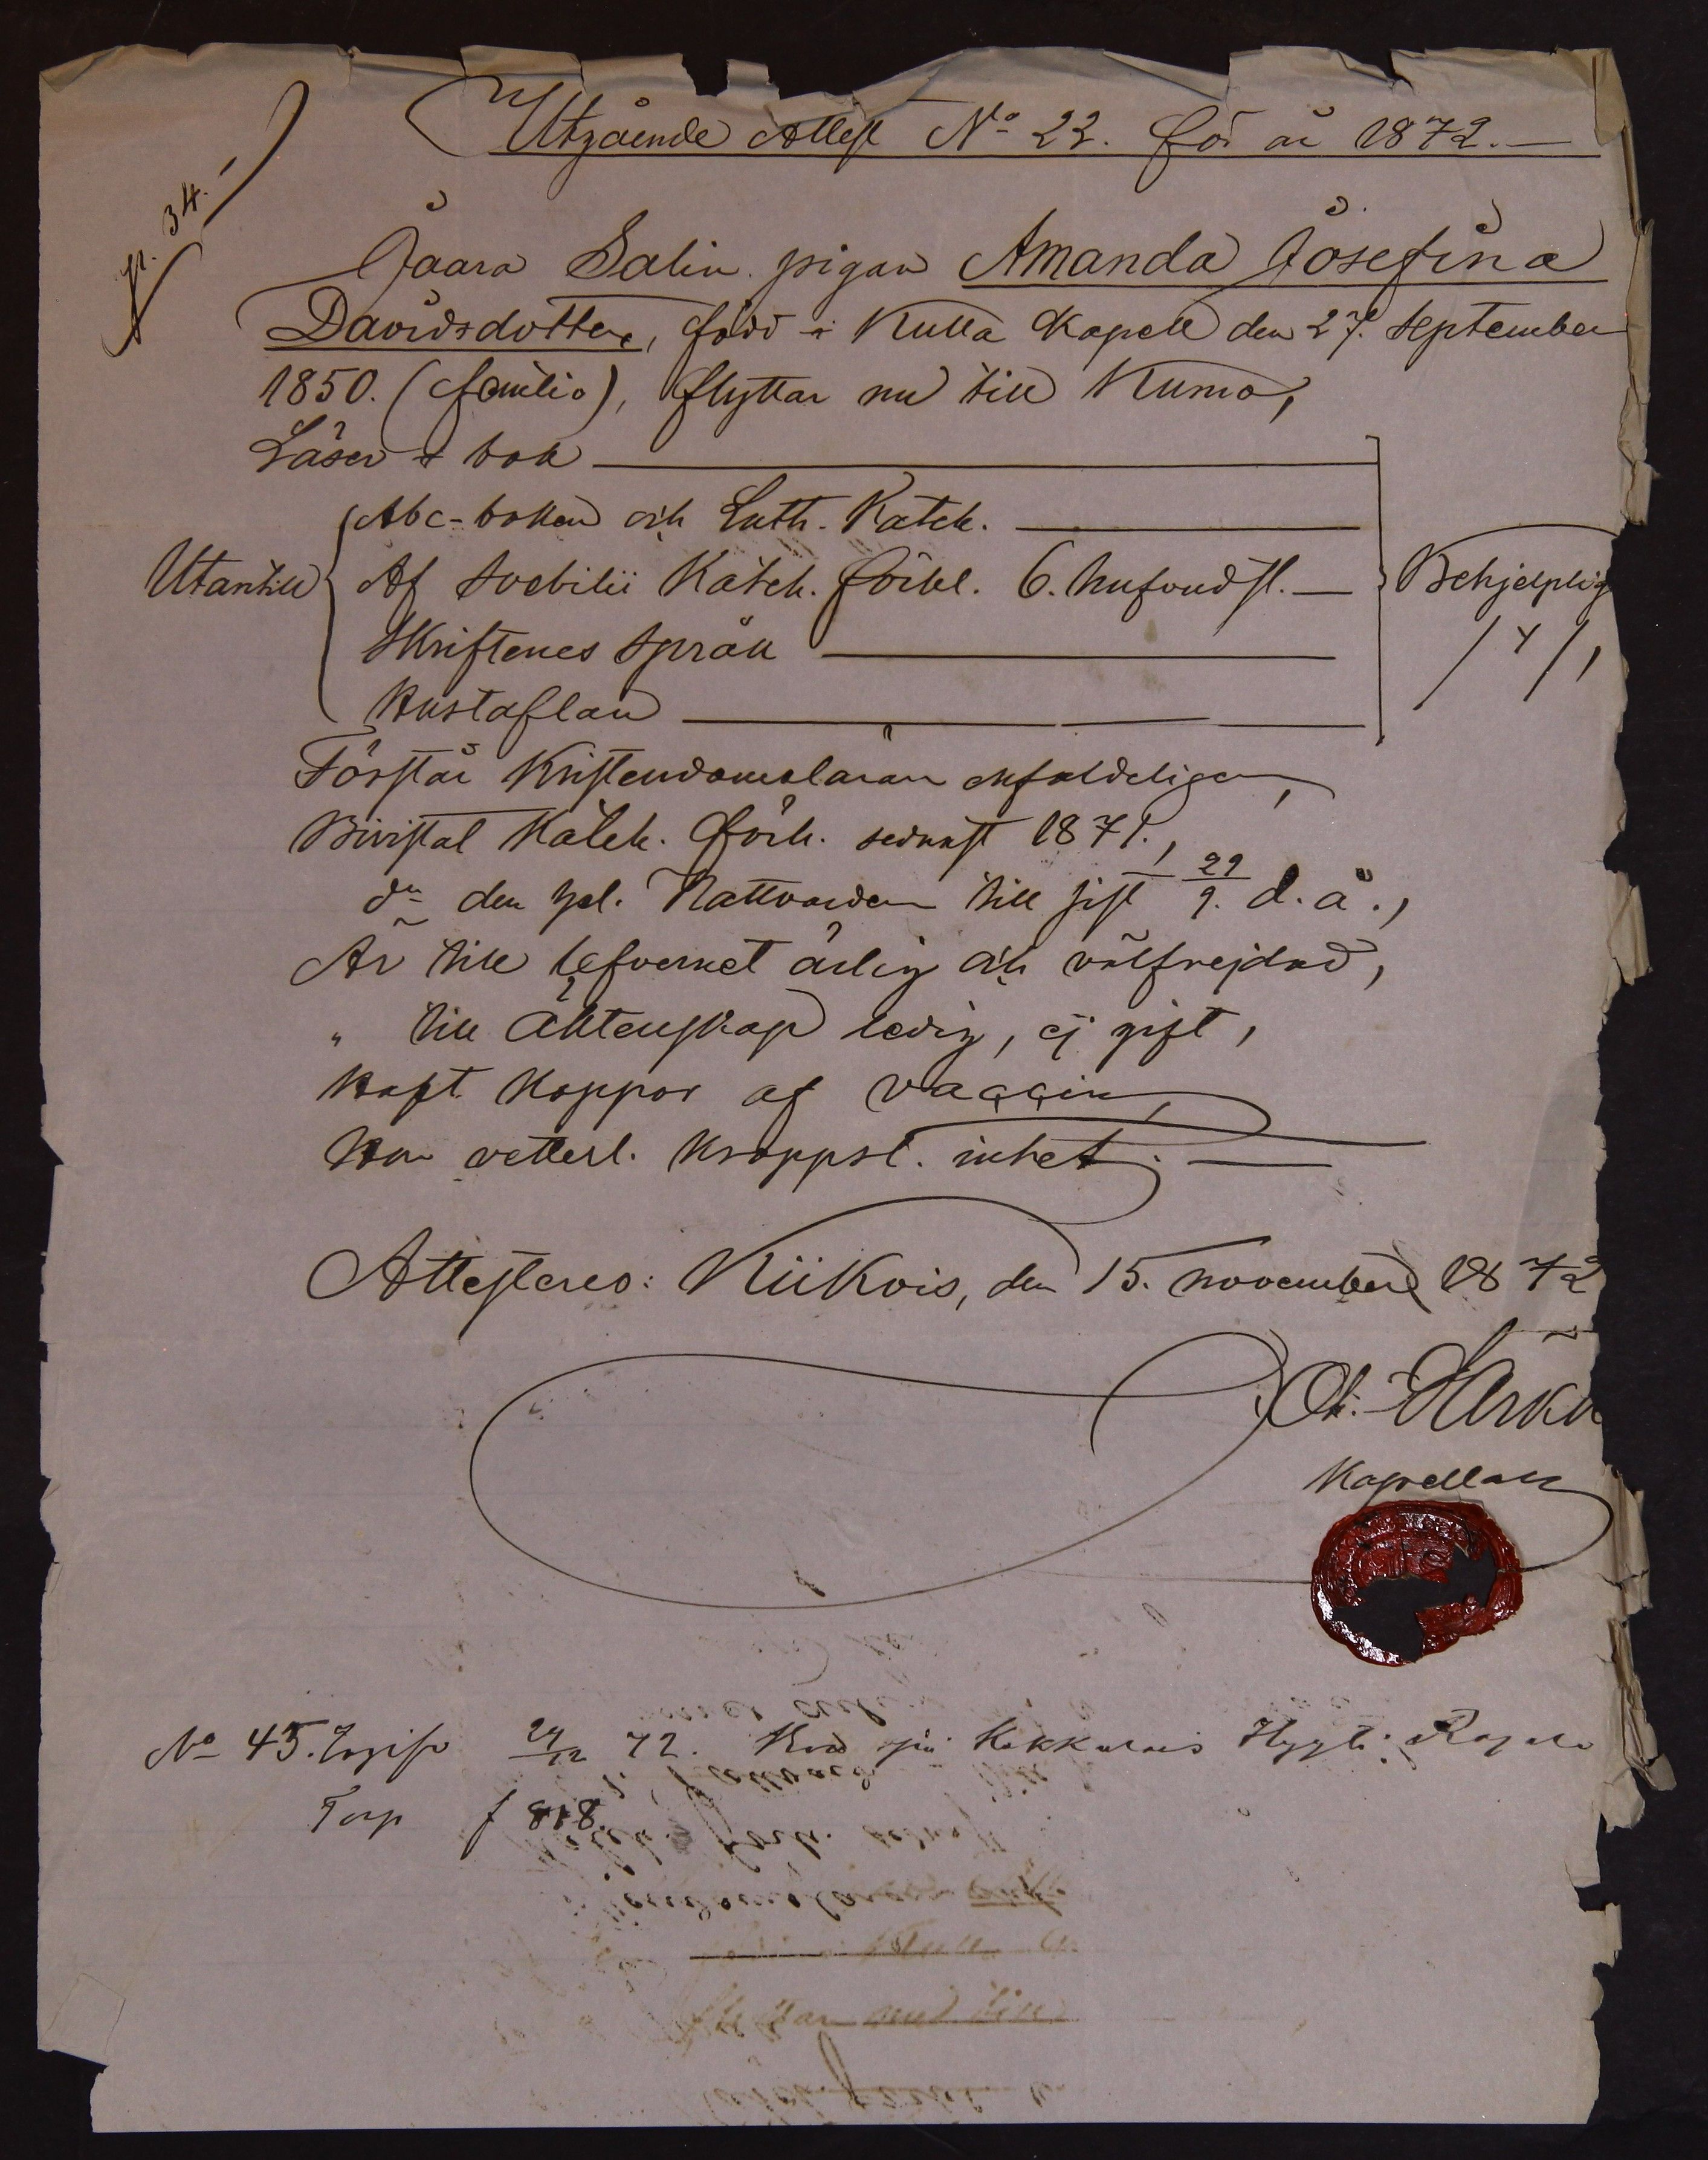 Utgående Attest No 22. för år 1872.—
p. 34.
Jaara Salin pigan Amanda Josefina
Davidsdotter, född i Kulla Kapell den 27. September
1850. (familie), flyttar nu till Kumo,
Läser i bok
Abc-boken och Luth. Katek.
Utantill Af Svebilii Katek. förkl. 6. hufvudst. — Behjelplig
Skriftenes Språk /4/,
Hustaflan
Förstår Kristendomsläran enfaldeligen,
Bivistat Katek. förh. sednast 1871.,
do den hel. Nattvarden till sist 29/9. d. å.,
Är till lefvernet ärlig och välfrejdad,
" till Äktenskap ledig, ej gift,
Haft Koppor af vaccin,
Har vetterl. Kroppsl. intet.
Attesteres: Kiikois, den 15. November 1872
Kapellan
No 45. 24/12 72. Kokkolais Hyggt:
Torp f 818.